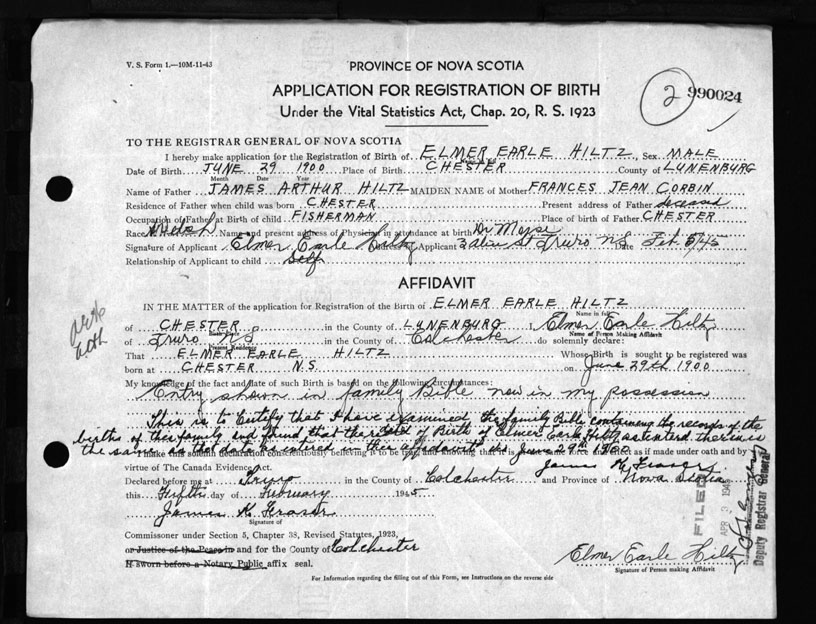 V. S. Form 1.—10M-11-43
PROVINCE OF NOVA SCOTIA
APPLICATION FOR REGISTRATION OF BIRTH
Under the Vital Statistics Act, Chap. 20, R. S. 1923
2 990024
TO THE REGISTRAR GENERAL OF NOVA SCOTIA
I hereby make application for the Registration of Birth of ELMER EARLE HILTZ, Sex MALE
Date of Birth JUNE 29 1900 Place of Birth CHESTER County of LUNENBURG
Month Date Year
Name of Father JAMES ARTHUR HILTZ MAIDEN NAME of Mother FRANCES JEAN CORBIN
Residence of Father when child was born CHESTER Present address of Father deceased
Occupation of Father at Birth of child FISHERMAN Place of birth of Father CHESTER
Race Name and present address of Physician in attendance at birth Dr
Signature of Applicant Elmer Earle Hiltz Address of Applicant St Truro NS Date Feb. 5/45
Relationship of Applicant to child Self
AFFIDAVIT
IN THE MATTER of the application for Registration of the Birth of ELMER EARLE HILTZ
Name in full
of CHESTER in the County of LUNENBURG I, Elmer Earle Hiltz
Birth Place Name of Person Making Affidavit
of Truro NS in the County of Colchester do solemnly declare:
Present Residence
That ELMER EARLE HILTZ Whose Birth is sought to be registered was
born at CHESTER N.S. on June 29th 1900
My knowledge of the fact and date of such Birth is based on the following circumstances:
Entry shown in family Bible now in my possession
This is to Certify that I have examined the family Bible containing the records of the
births of this family and found that the record of Birth of Elmer Earle Hiltz as entered therein is
the same as the date as stated in this affidavit is June 29th 1900
I make this solemn declaration conscientiously believing it to be true and knowing that it is of the same force and effect as if made under oath and by
virtue of The Canada Evidence Act. James K Fraser
Declared before me at Truro in the County of Colchester and Province of Nova Scotia
this Fifth day of February 1945
James K Fraser
Signature of
Commissioner under Section 5, Chapter 38, Revised Statutes, 1923,
or Justice of the Peace in and for the County of Colchester
If sworn before a Notary Public affix seal.
Elmer Earle Hiltz
Signature of Person making Affidavit
For Information regarding the filling out of this Form, see Instructions on the reverse side
FILED
APR 3 194
Deputy Registrar General